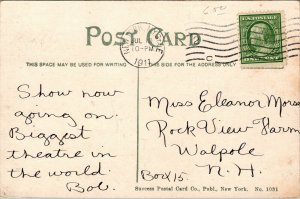 600
POST CARD
NEW YORK
JUL
10-PM
1911
THIS SPACE MAY BE USED FOR WRITING
THIS SIDE FOR THE ADDRESS ONLY
Show now
going on.
Biggest
theatre in
the world
Bob.
Miss Eleanor Morse
Rock View Farm
Walpole
Box 15 N. H.
Success Postal Card Co., Publ., New York. No. 1031